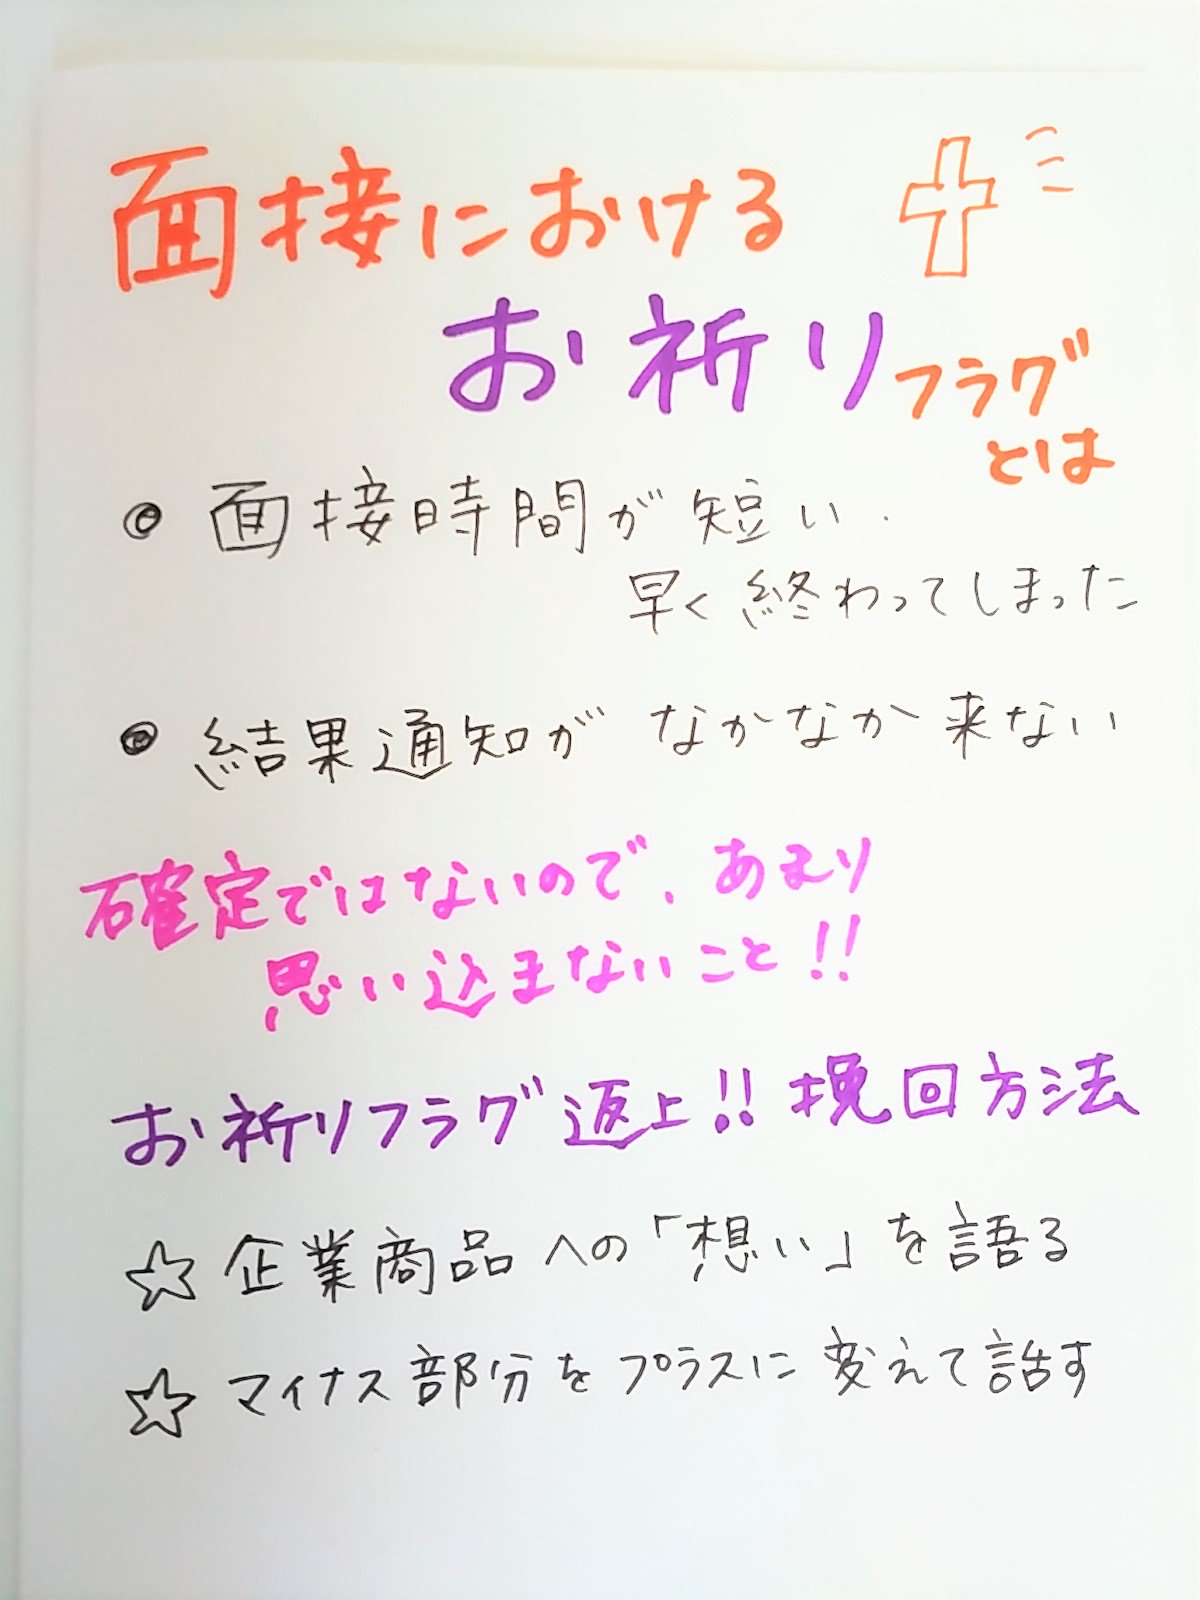 面接における
お祈りフラグ
とは
面接時間が短い.
早く終わってしまった
結果通知がなかなか来ない
確定ではないので、あまり
思い込まないこと!!
お祈りフラグ返上!!挽回方法
☆企業商品への「想い」を語る
☆マイナス部分をプラスに変えて話す